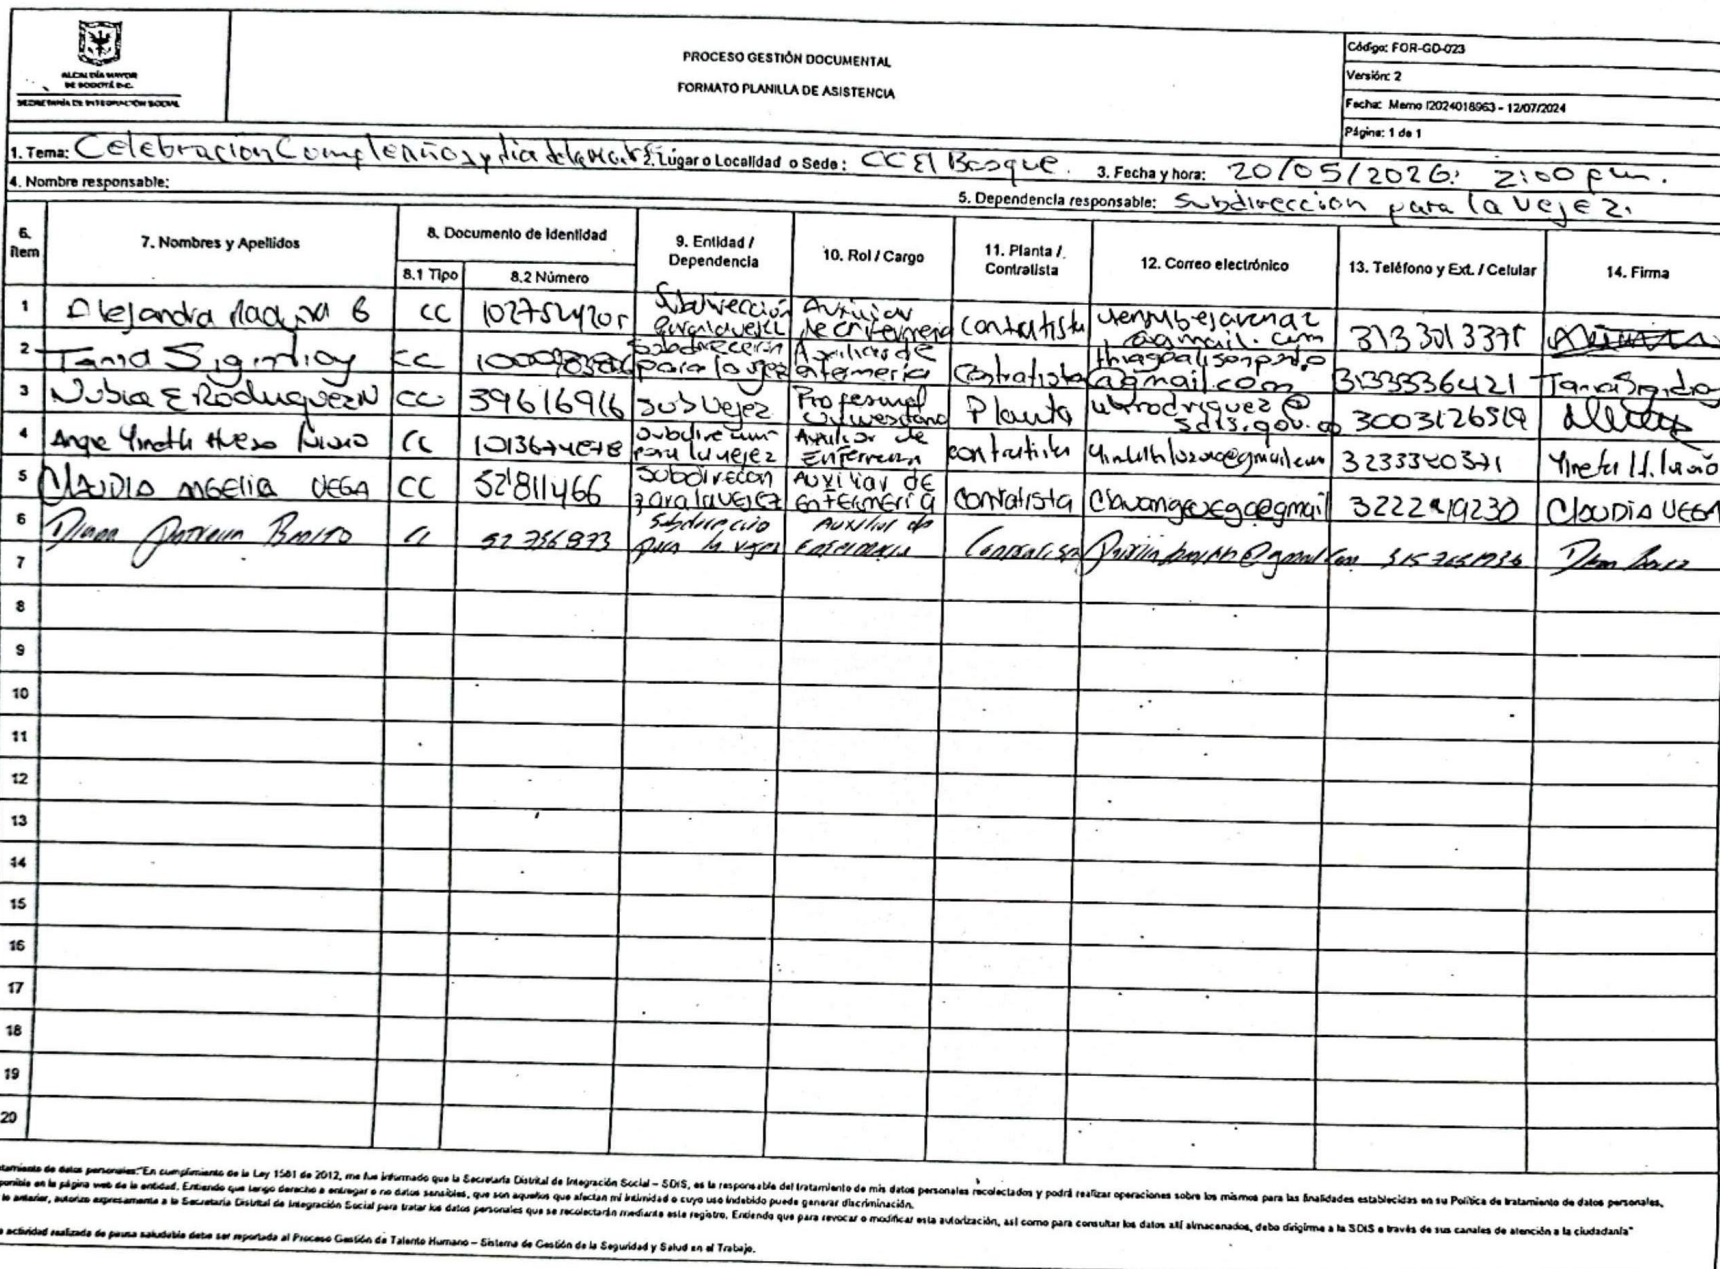 ALCALDÍA MAYOR
DE BOGOTÁ D.C.
SECRETARÍA DE INTEGRACIÓN SOCIAL
PROCESO GESTIÓN DOCUMENTAL
FORMATO PLANILLA DE ASISTENCIA
Código: FOR-GD-023
Versión: 2
Fecha: Memo I2024018963 - 12/07/2024
Página: 1 de 1
1. Tema: Celebracion Cumpleaños y dia de la 2. Lugar o Localidad o Sede: CC El Bosque. 3. Fecha y hora: 20/05/2026: 2:00 pm.
4. Nombre responsable: 5. Dependencia responsable: Subdirección para la vejez.
6. Ítem 7. Nombres y Apellidos 8. Documento de Identidad 8.1 Tipo 8.2 Número 9. Entidad / Dependencia 10. Rol / Cargo 11. Planta / Contratista 12. Correo electrónico 13. Teléfono y Ext. / Celular 14. Firma
1 Alejandra B CC Subdirección Auxiliar de enfermeria contratista @gmail.com
2 Tania Sigindioy CC Subdirección para la vejez Auxiliar de enfermeria Contratista @gmail.com 3133336421 Tania Sigindioy
3 Nubia E Rodriguez N CC 39616916 Sub Vejez Profesional Planta 3003126519
4 Angie Yineth CC Subdirección para la vejez Auxiliar de Enfermeria contratista 3233320371
5 CLAUDIA ANGELIA VEGA CC 52811466 Subdirecon para la vejez Auxiliar de enfermería Contratista 3222419230 CLAUDIA VEGA
6 Diana Patricia Benito CC Subdirección para la vejez Auxiliar de Enfermeria Contratista
7
8
9
10
11
12
13
14
15
16
17
18
19
20
tamiento de datos personales:"En cumplimiento de la Ley 1581 de 2012, me fue informado que la Secretaría Distrital de Integración Social – SDIS, es la responsable del tratamiento de mis datos personales recolectados y podrá realizar operaciones sobre los mismos para las finalidades establecidas en su Política de tratamiento de datos personales,
ponible en la página web de la entidad. Entiendo que tengo derecho a entregar o no datos sensibles, que son aquellos que afectan mi intimidad o cuyo uso indebido puede generar discriminación.
lo anterior, autorizo expresamente a la Secretaría Distrital de Integración Social para tratar los datos personales que se recolectarán mediante este registro. Entiendo que para revocar o modificar esta autorización, así como para consultar los datos allí almacenados, debo dirigirme a la SDIS a través de sus canales de atención a la ciudadanía"
actividad realizada de pausa saludable debe ser reportada al Proceso Gestión de Talento Humano – Sistema de Gestión de la Seguridad y Salud en el Trabajo.